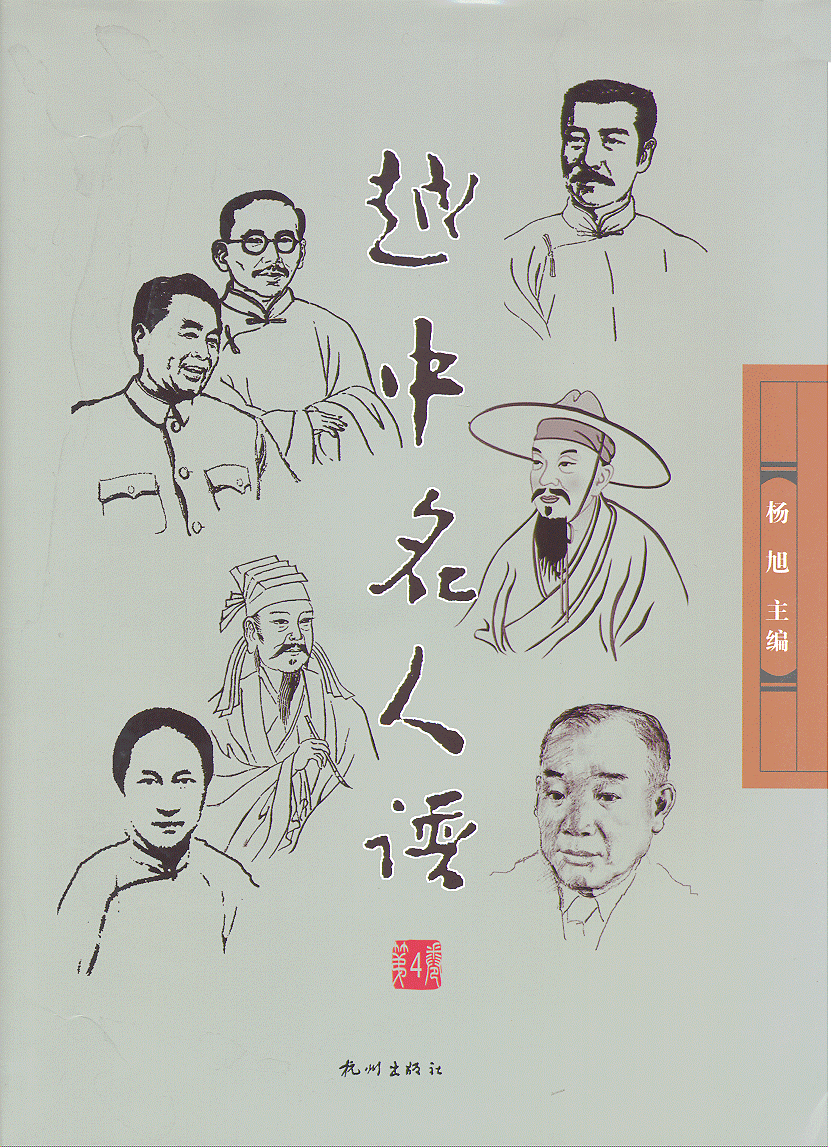 越中名人谱
第4卷
杨旭 主编
杭州出版社